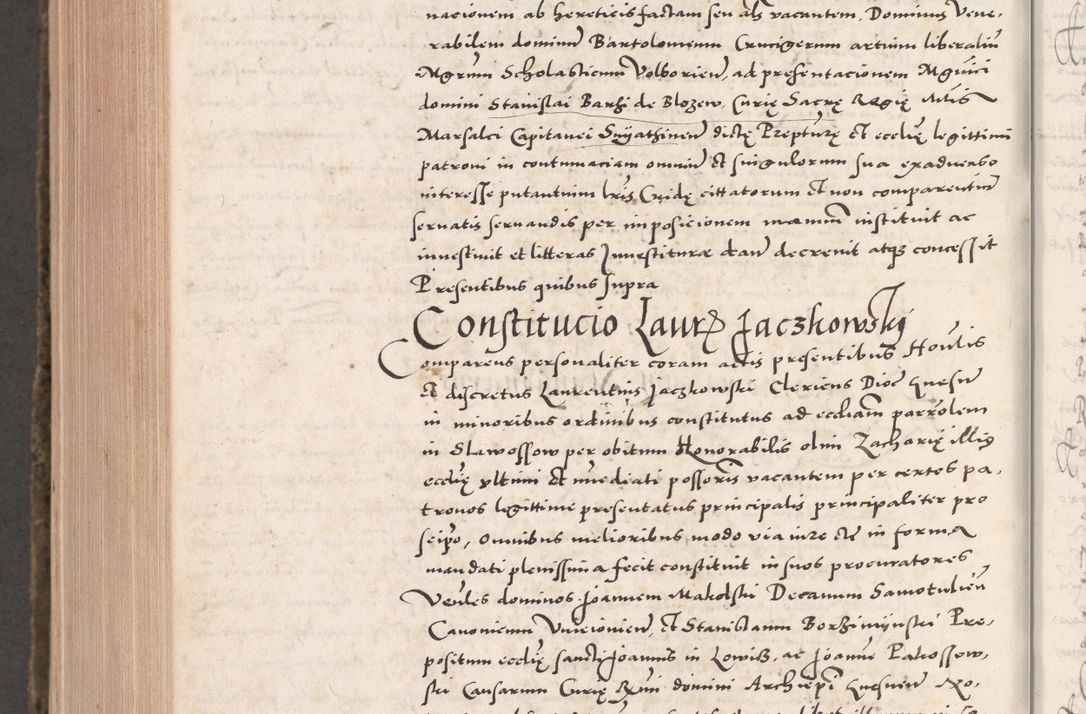 nacionem ab hereticis factam seu als vacantem. Dominus Vene-
rabilem dominu Bartolomeum Crucigerum artium liberaliu
Mgrum Scholasticum Volborien, ad presentacionem Mgnici
domini Stanislai Barzi de Blozew, Curię Sacrę Regię Mtis
Marsalci Capitanei Snyathinen dictę Prepturę et ecclię legittimi
patroni in contumaciam omniu et singulorum sua exaduerso
interesse putantium lris Cridę cittatorum et non comparentiu
seruatis seruandis per imposicionem manuu instituit ac
inuestiuit et litteras Inuestiturae dari decreuit atqz concessit
Presentibus quibus supra
Constitucio Laur Jaczkowskj
Comparens personaliter coram actis presentibus Honlis
et discretus Laurentius Jaczkowski Clericus Dioc Gnesn
in minoribus ordinibus constitutus ad eccliam parrolem
in Slawossow per obitum Honorabilis olim Zacharię illig
ecclię vltimi et imediati possoris vacantem per certos pa-
tronos legittime presentatus principalis principaliter pro
seipo, Omnibus melioribus modo via iure etc in forma
mandati plenissima fecit constituit in suos procuratores
Venles dominos Joannem Makolski Decanum Samotulien
Canonicum Vnieiouien, et Stanislaum Borzimynski Pre-
positum ecclię sancti Joannis in Lowicz, ac Joanne Pakossow-
ski Causarum Curię Rmi domini Archiepi Gnesnen No-